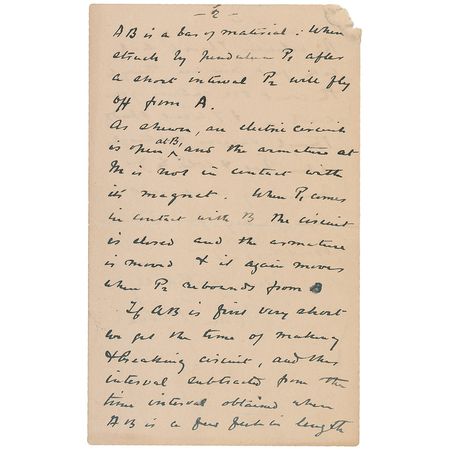 - 2 -
AB is a bar of material: When
struck by pendulum P1 after
a short interval P2 will fly
off from A.
As shewn, an electric circuit
is open at B, and the armature at
M is not in contact with
its magnet. When P1 comes
in contact with B the circuit
is closed and the armature
is moved & it again moves
when P2 rebounds from B
If AB is first very short
we get the time of making
& breaking circuit, and this
interval subtracted from the
time interval obtained when
AB is a few feet in length